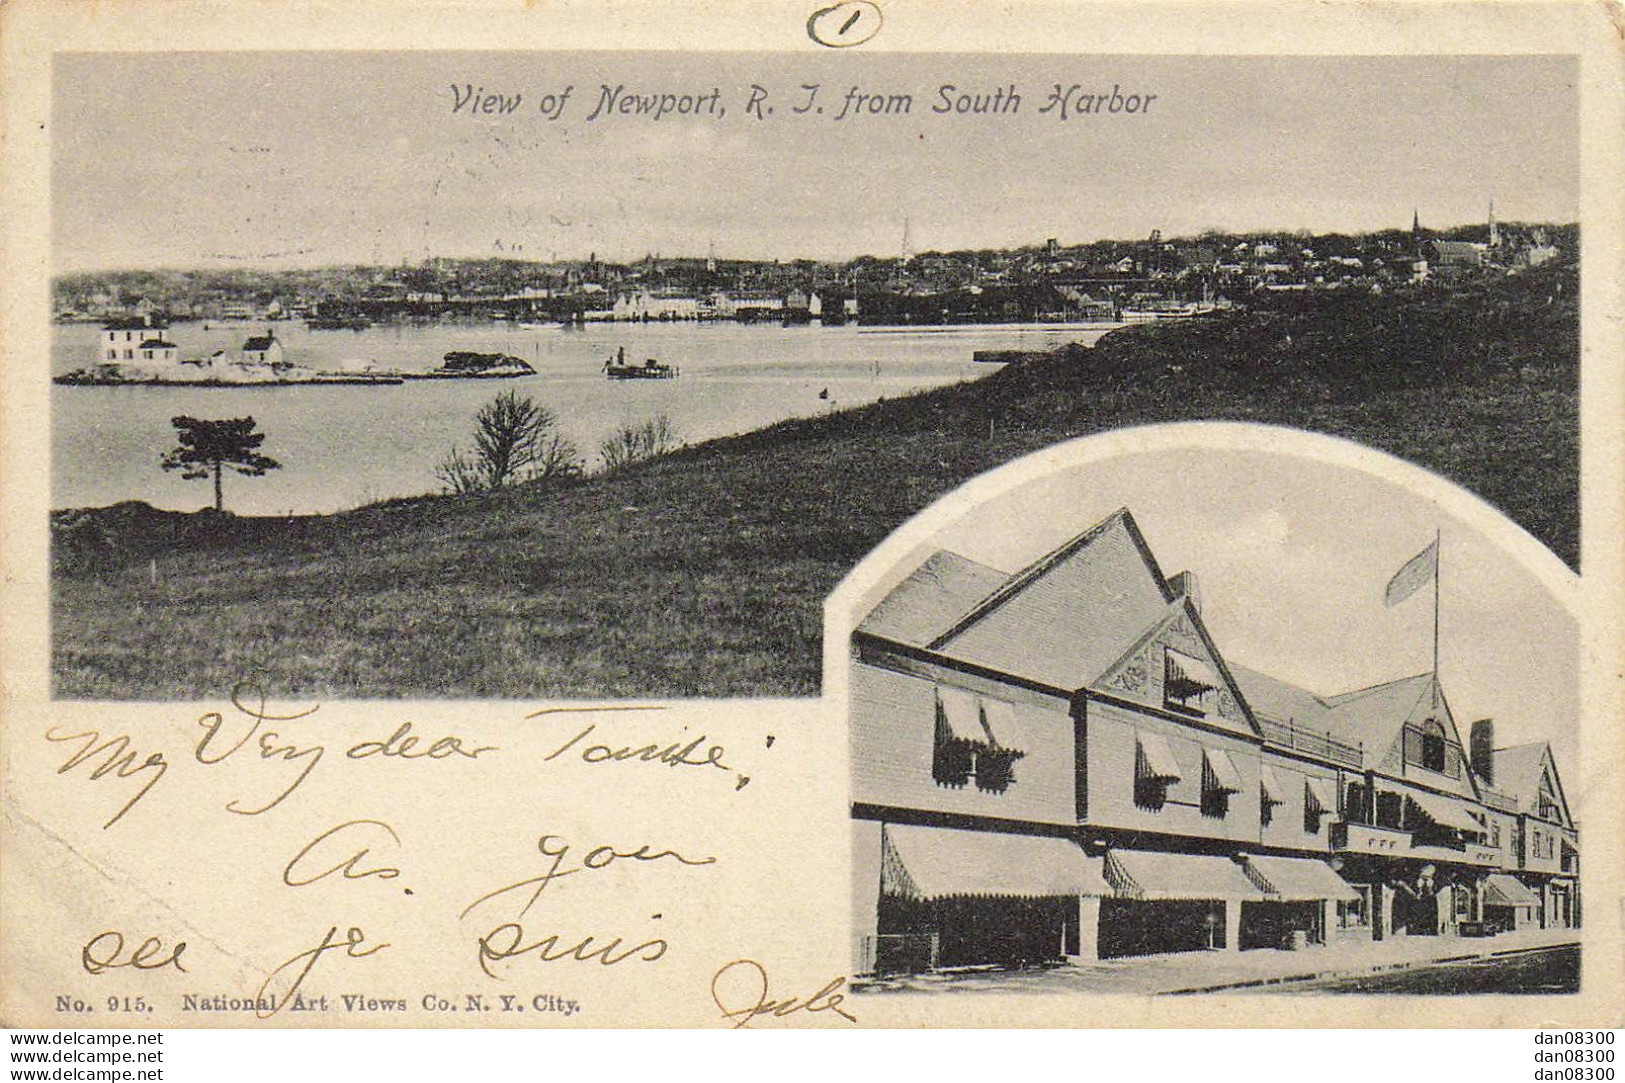 1
View of Newport, R. I. from South Harbor
My Very dear
As you
see je suis
No. 915. National Art Views Co. N. Y. City.
www.delcampe.net
www.delcampe.net
www.delcampe.net
dan08300
dan08300
dan08300